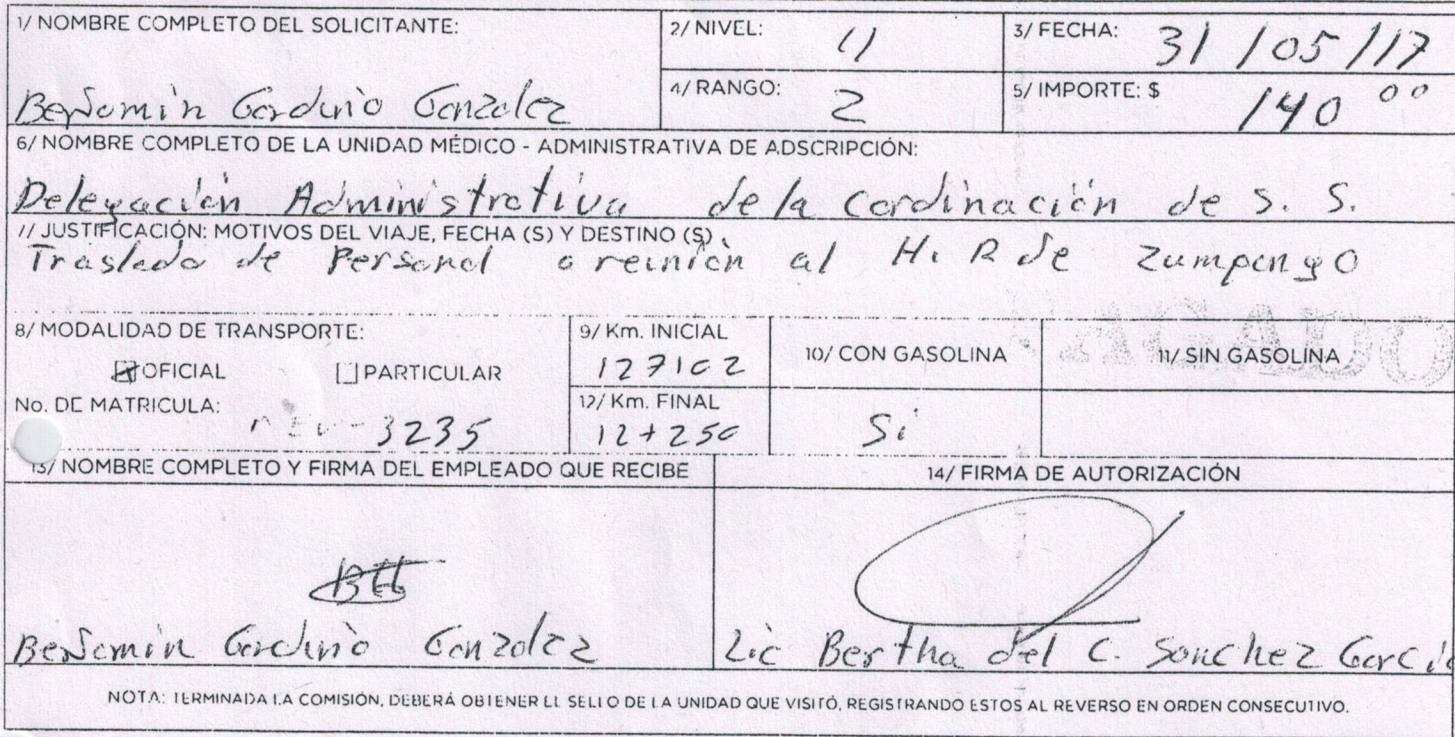 1/ NOMBRE COMPLETO DEL SOLICITANTE:
Benjamin Garduño Gonzalez
2/ NIVEL: 11
3/ FECHA: 31 / 05 / 17
4/ RANGO: 2
5/ IMPORTE: $ 140 00
6/ NOMBRE COMPLETO DE LA UNIDAD MÉDICO - ADMINISTRATIVA DE ADSCRIPCIÓN:
Delegación Administrativa de la Cordinación de S. S.
7/ JUSTIFICACIÓN: MOTIVOS DEL VIAJE, FECHA (S) Y DESTINO (S)
Traslado de Personal a reinión al H. R de Zumpango
8/ MODALIDAD DE TRANSPORTE:
OFICIAL PARTICULAR
No. DE MATRICULA:
3235
9/ Km. INICIAL
127102
12/ Km. FINAL
127250
10/ CON GASOLINA
Si
11/ SIN GASOLINA
PAGADO
13/ NOMBRE COMPLETO Y FIRMA DEL EMPLEADO QUE RECIBE
Benjamin Garduño Gonzalez
14/ FIRMA DE AUTORIZACIÓN
Lic Bertha del C. Sanchez Garcia
NOTA: TERMINADA LA COMISIÓN, DEBERÁ OBTENER EL SELLO DE LA UNIDAD QUE VISITÓ, REGISTRANDO ESTOS AL REVERSO EN ORDEN CONSECUTIVO.